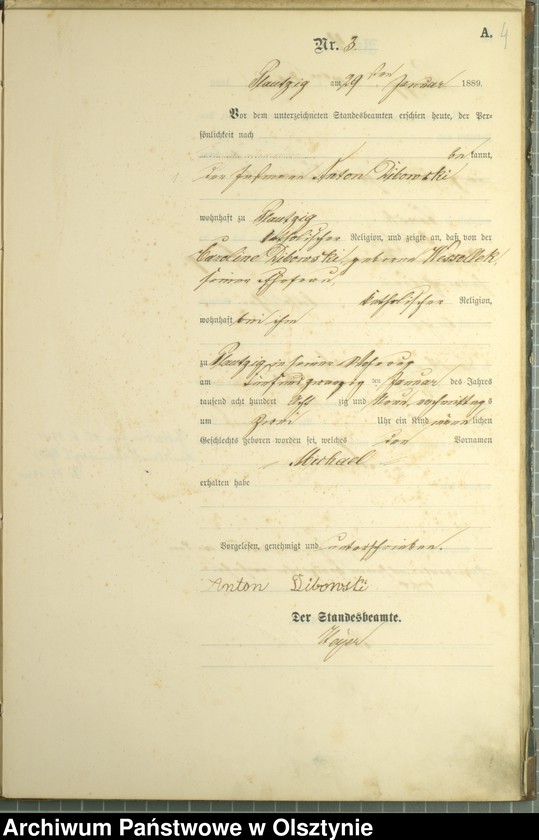 A. 4
Nr. 3
Plautzig am 29ten Januar 1889.
Vor dem unterzeichneten Standesbeamten erschien heute, der Per-
sönlichkeit nach
bekannt,
der Anton Dibowski
wohnhaft zu Plautzig
katholischer Religion, und zeigte an, daß von der
Caroline Dibowski geborene
seiner Ehefrau
katholischer Religion,
wohnhaft bei ihm
zu Plautzig in seiner Wohnung
am fünfundzwanzigten Januar des Jahres
tausend acht hundert Acht zig und Neun, nachmittags
um zwei Uhr ein Kind männlichen
Geschlechts geboren worden sei, welches den Vornamen
Michael
erhalten habe
Vorgelesen, genehmigt und unterschrieben.
Anton Dibowski
Der Standesbeamte.
Archiwum Państwowe w Olsztynie